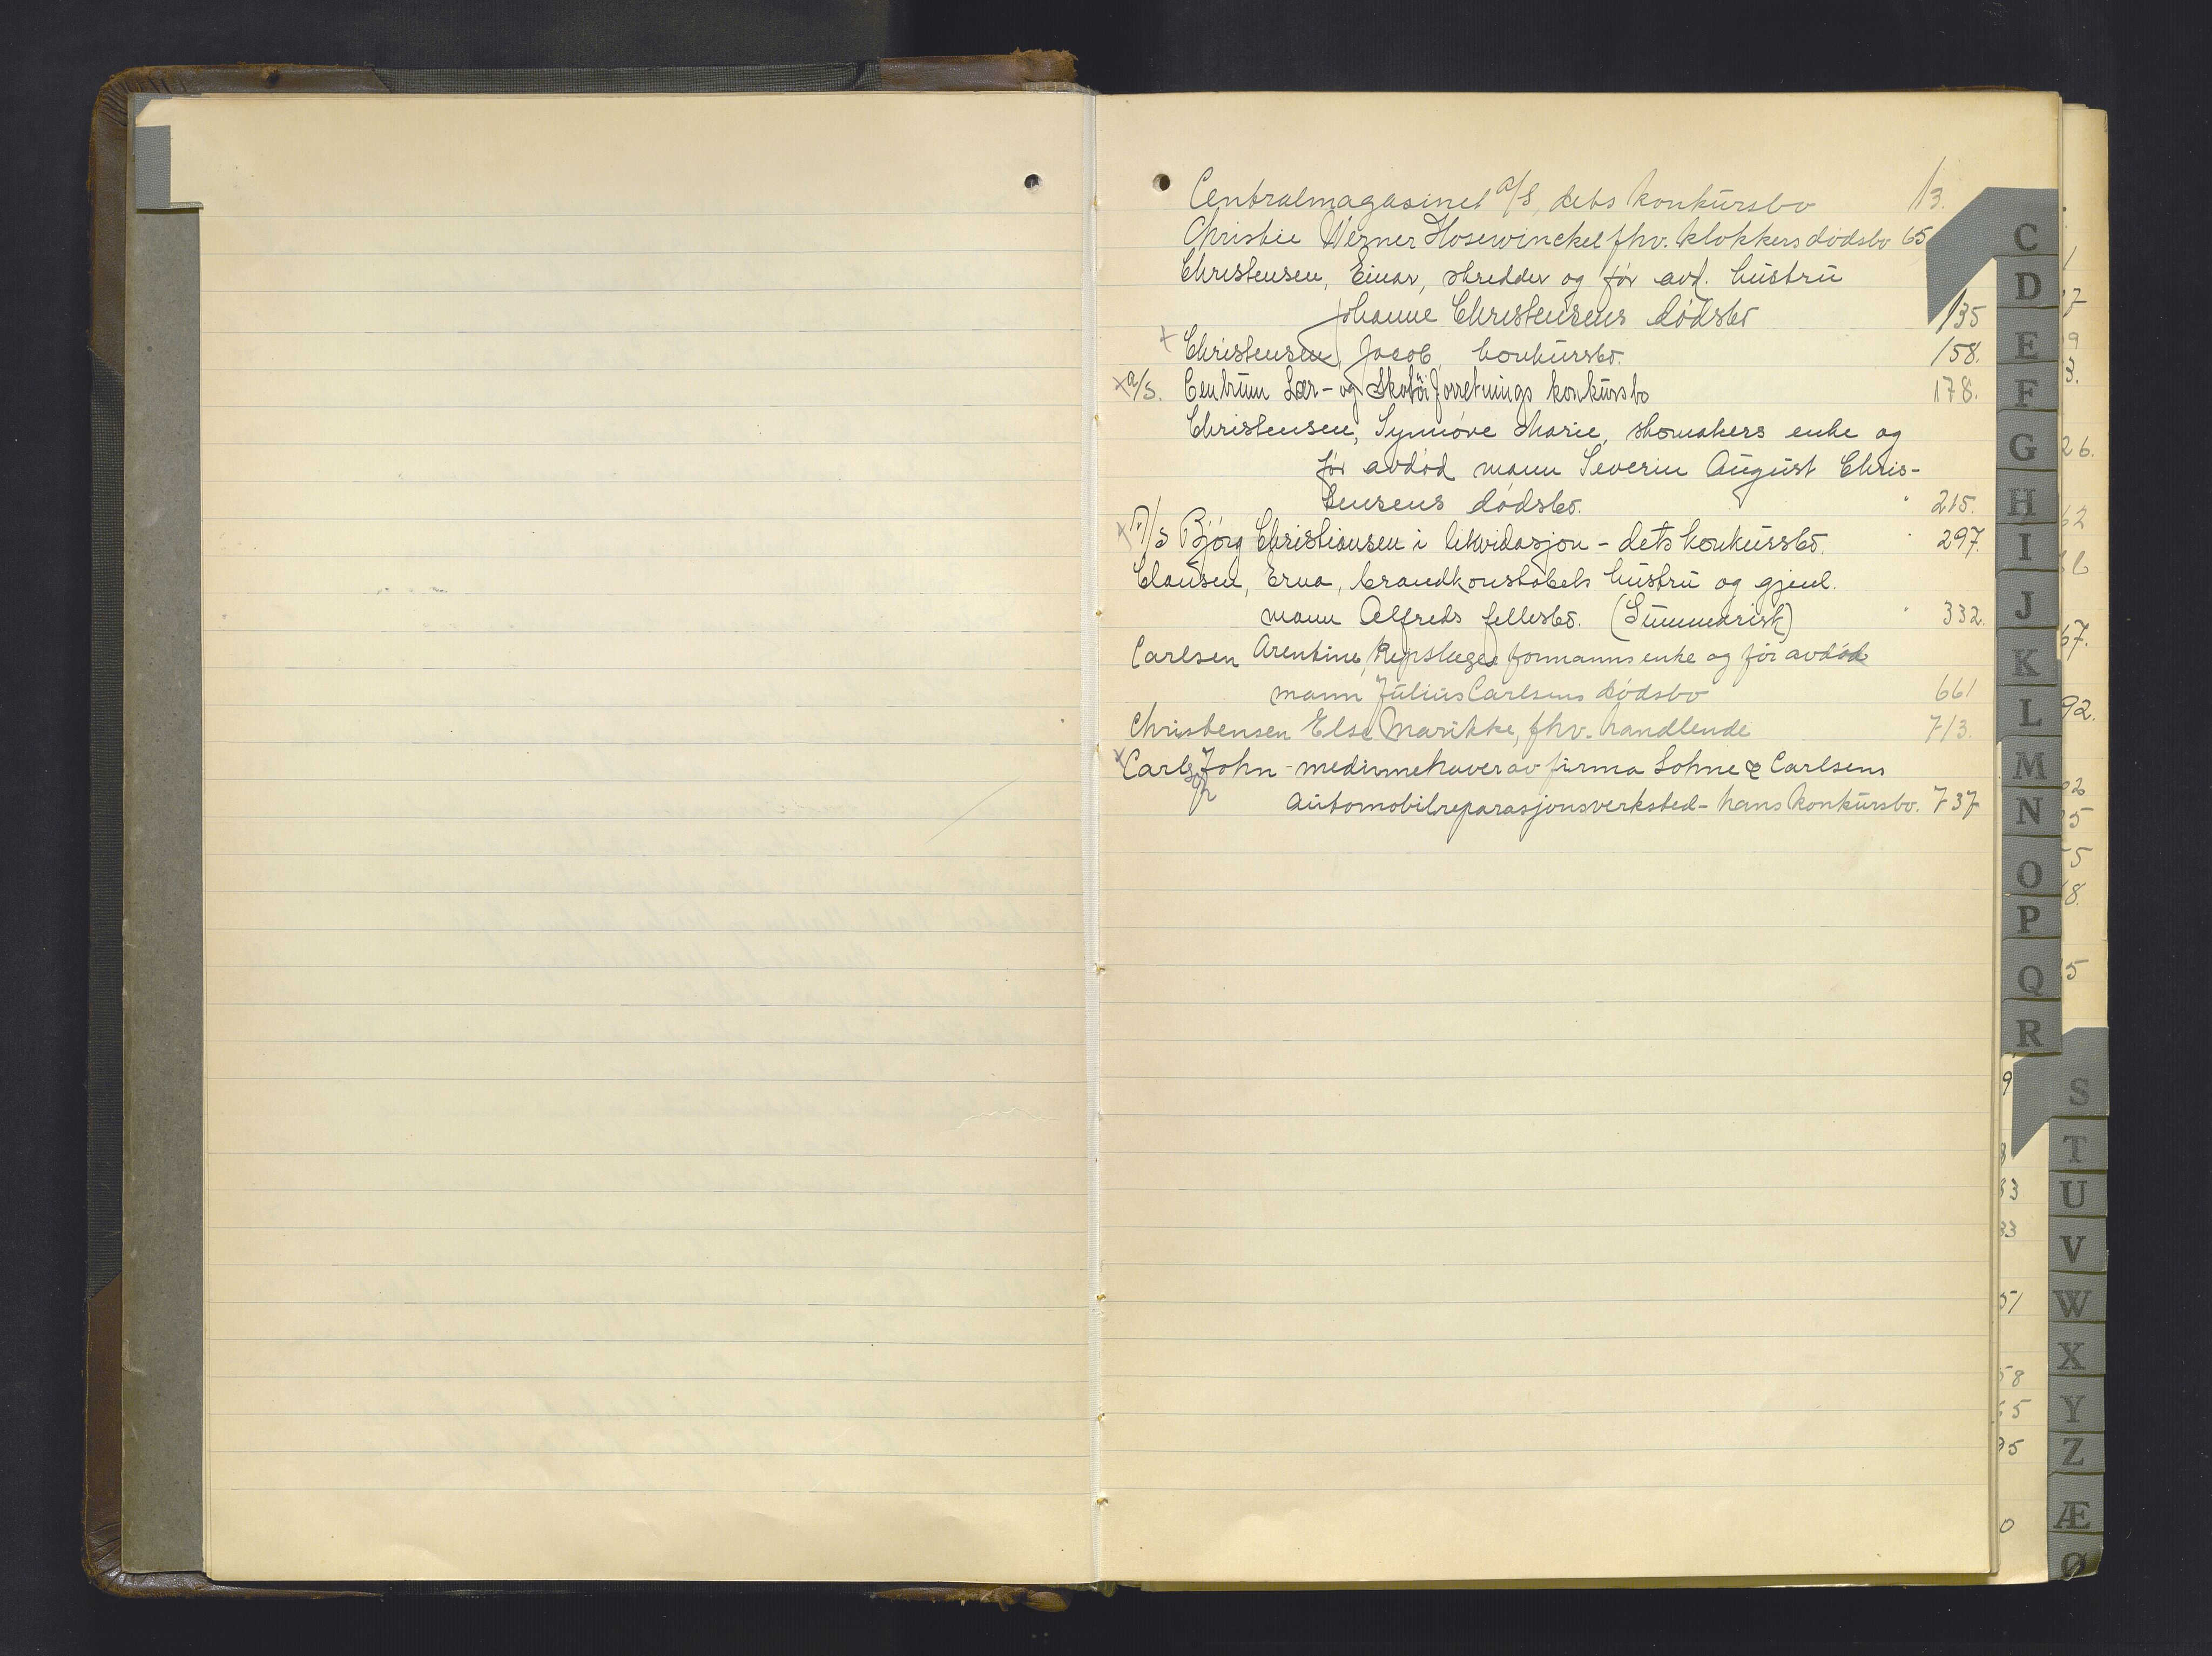 Centralmagasinet a/s, dets konkursbo 13.
Christie Werner Hosewinckel fhv. klokkers dødsbo 65
Christensen, Einar, skredder og før avd. hustru
Johanne Christensens dødsbo 135
x Christensen, Jacob, konkursbo. 158.
x a/s. Centrum Lær- og Skotöiforretnings konkursbo 178.
Christensen, Synnøve Marie, skomakers enke og
før avdød mann Severin August Chris-
tensens dødsbo. 215.
x A/s Bjørg Christiansen i likvidasjon - dets konkursbo. 297.
Clausen, Erna, brandkonstabels hustru og gjenl.
mann Alfreds fellesbo. (Summarisk) 332.
Carlsen Arentine, Repslager formanns enke og før avdøde
mann Julius Carlsens dødsbo 661
Christensen Else Marikke, fhv. handlende 713.
x Carlsen John - medinnehaver av firma Lohne & Carlsens
automobilreparasjonsverksted - hans konkursbo. 737
C
D
E
F
G
H
I
J
K
L
M
N
O
P
Q
R
S
T
U
V
W
X
Y
Z
Æ
Ø